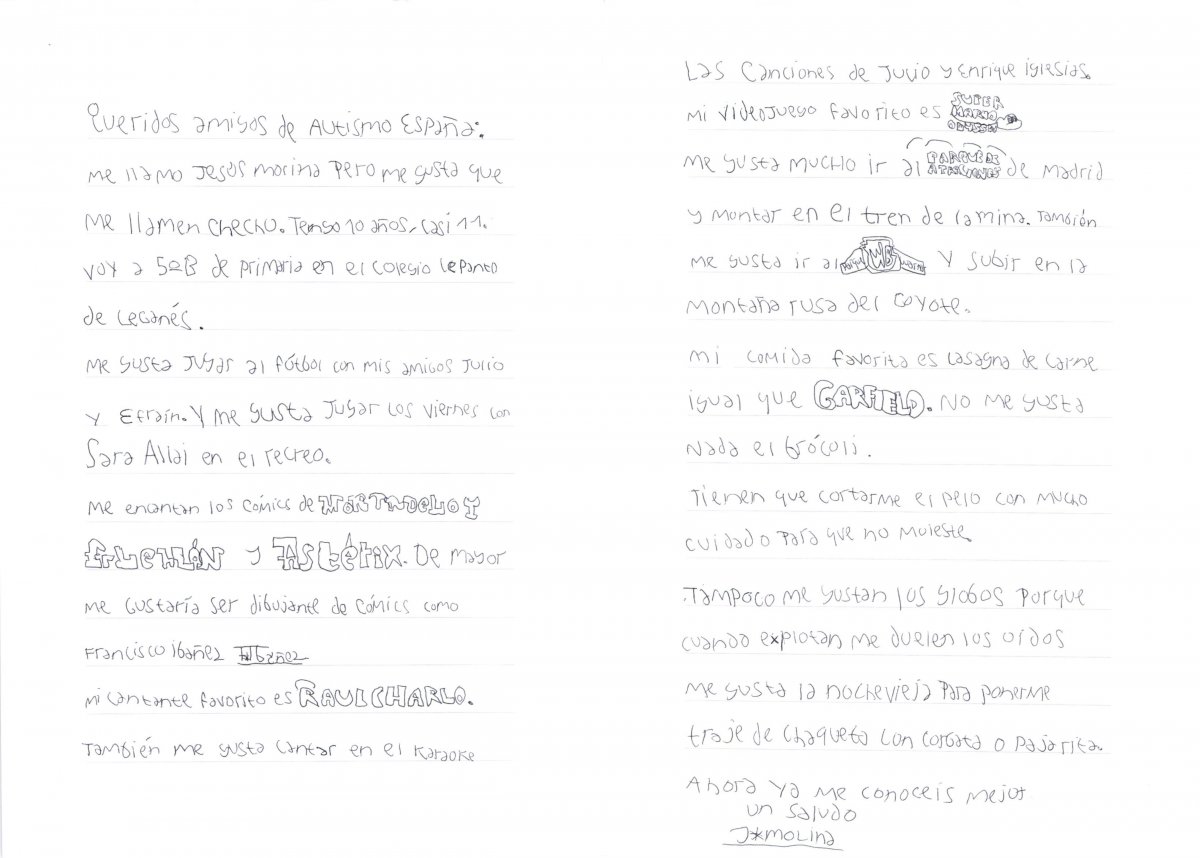 Queridos amigos de Autismo España:
me llamo Jesús molina Pero me gusta que
Me llamen Checho. Tengo 10 años, casi 11.
Voy a 5ºB de primaria en el colegio Lepanto
de Leganés.
Me gusta Jugar al fútbol con mis amigos Julio
y Efraín. Y me gusta Jugar Los viernes con
Sara Allai en el recreo.
Me encantan los Cómics de MORTADELO Y
FILEMÓN y Astérix. De mayor
me Gustaría ser dibujante de Cómics como
Francisco Ibañez Ibáñez
Mi Cantante favorito es RAUL CHARLO.
También me gusta Cantar en el Karaoke
Las Canciones de Julio y Enrique iglesias.
Mi Videojuego favorito es SUPER MARIO ODYSSEY
Me gusta mucho ir al PARQUE DE ATRACCIONES de Madrid
y montar en el tren de la mina. También
me gusta ir al Parque WB Warner Y subir en la
Montaña rusa del Coyote.
Mi comida favorita es Lasagna de carne
igual que GARFIELD. No me gusta
Nada el brócoli.
Tienen que cortarme el pelo con mucho
cuidado para que no moleste
.Tampoco me gustan los globos porque
cuando explotan me duelen los oídos
Me gusta la nochevieja para ponerme
traje de chaqueta con corbata o pajarita.
Ahora ya me conoceis mejor
un saludo
J*MOLina